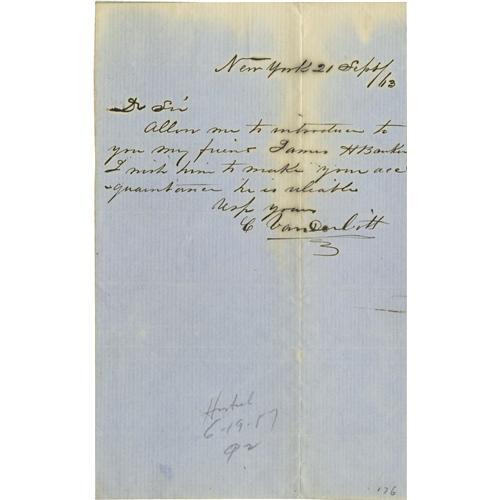 New York 21 Sept/63
Dr Sir
Allow me to introduce to
you my friend James H Banker
I wish him to make your acc
-quaintance he is reliable
Resp yours
C Vanderbilt
6-19-57
126